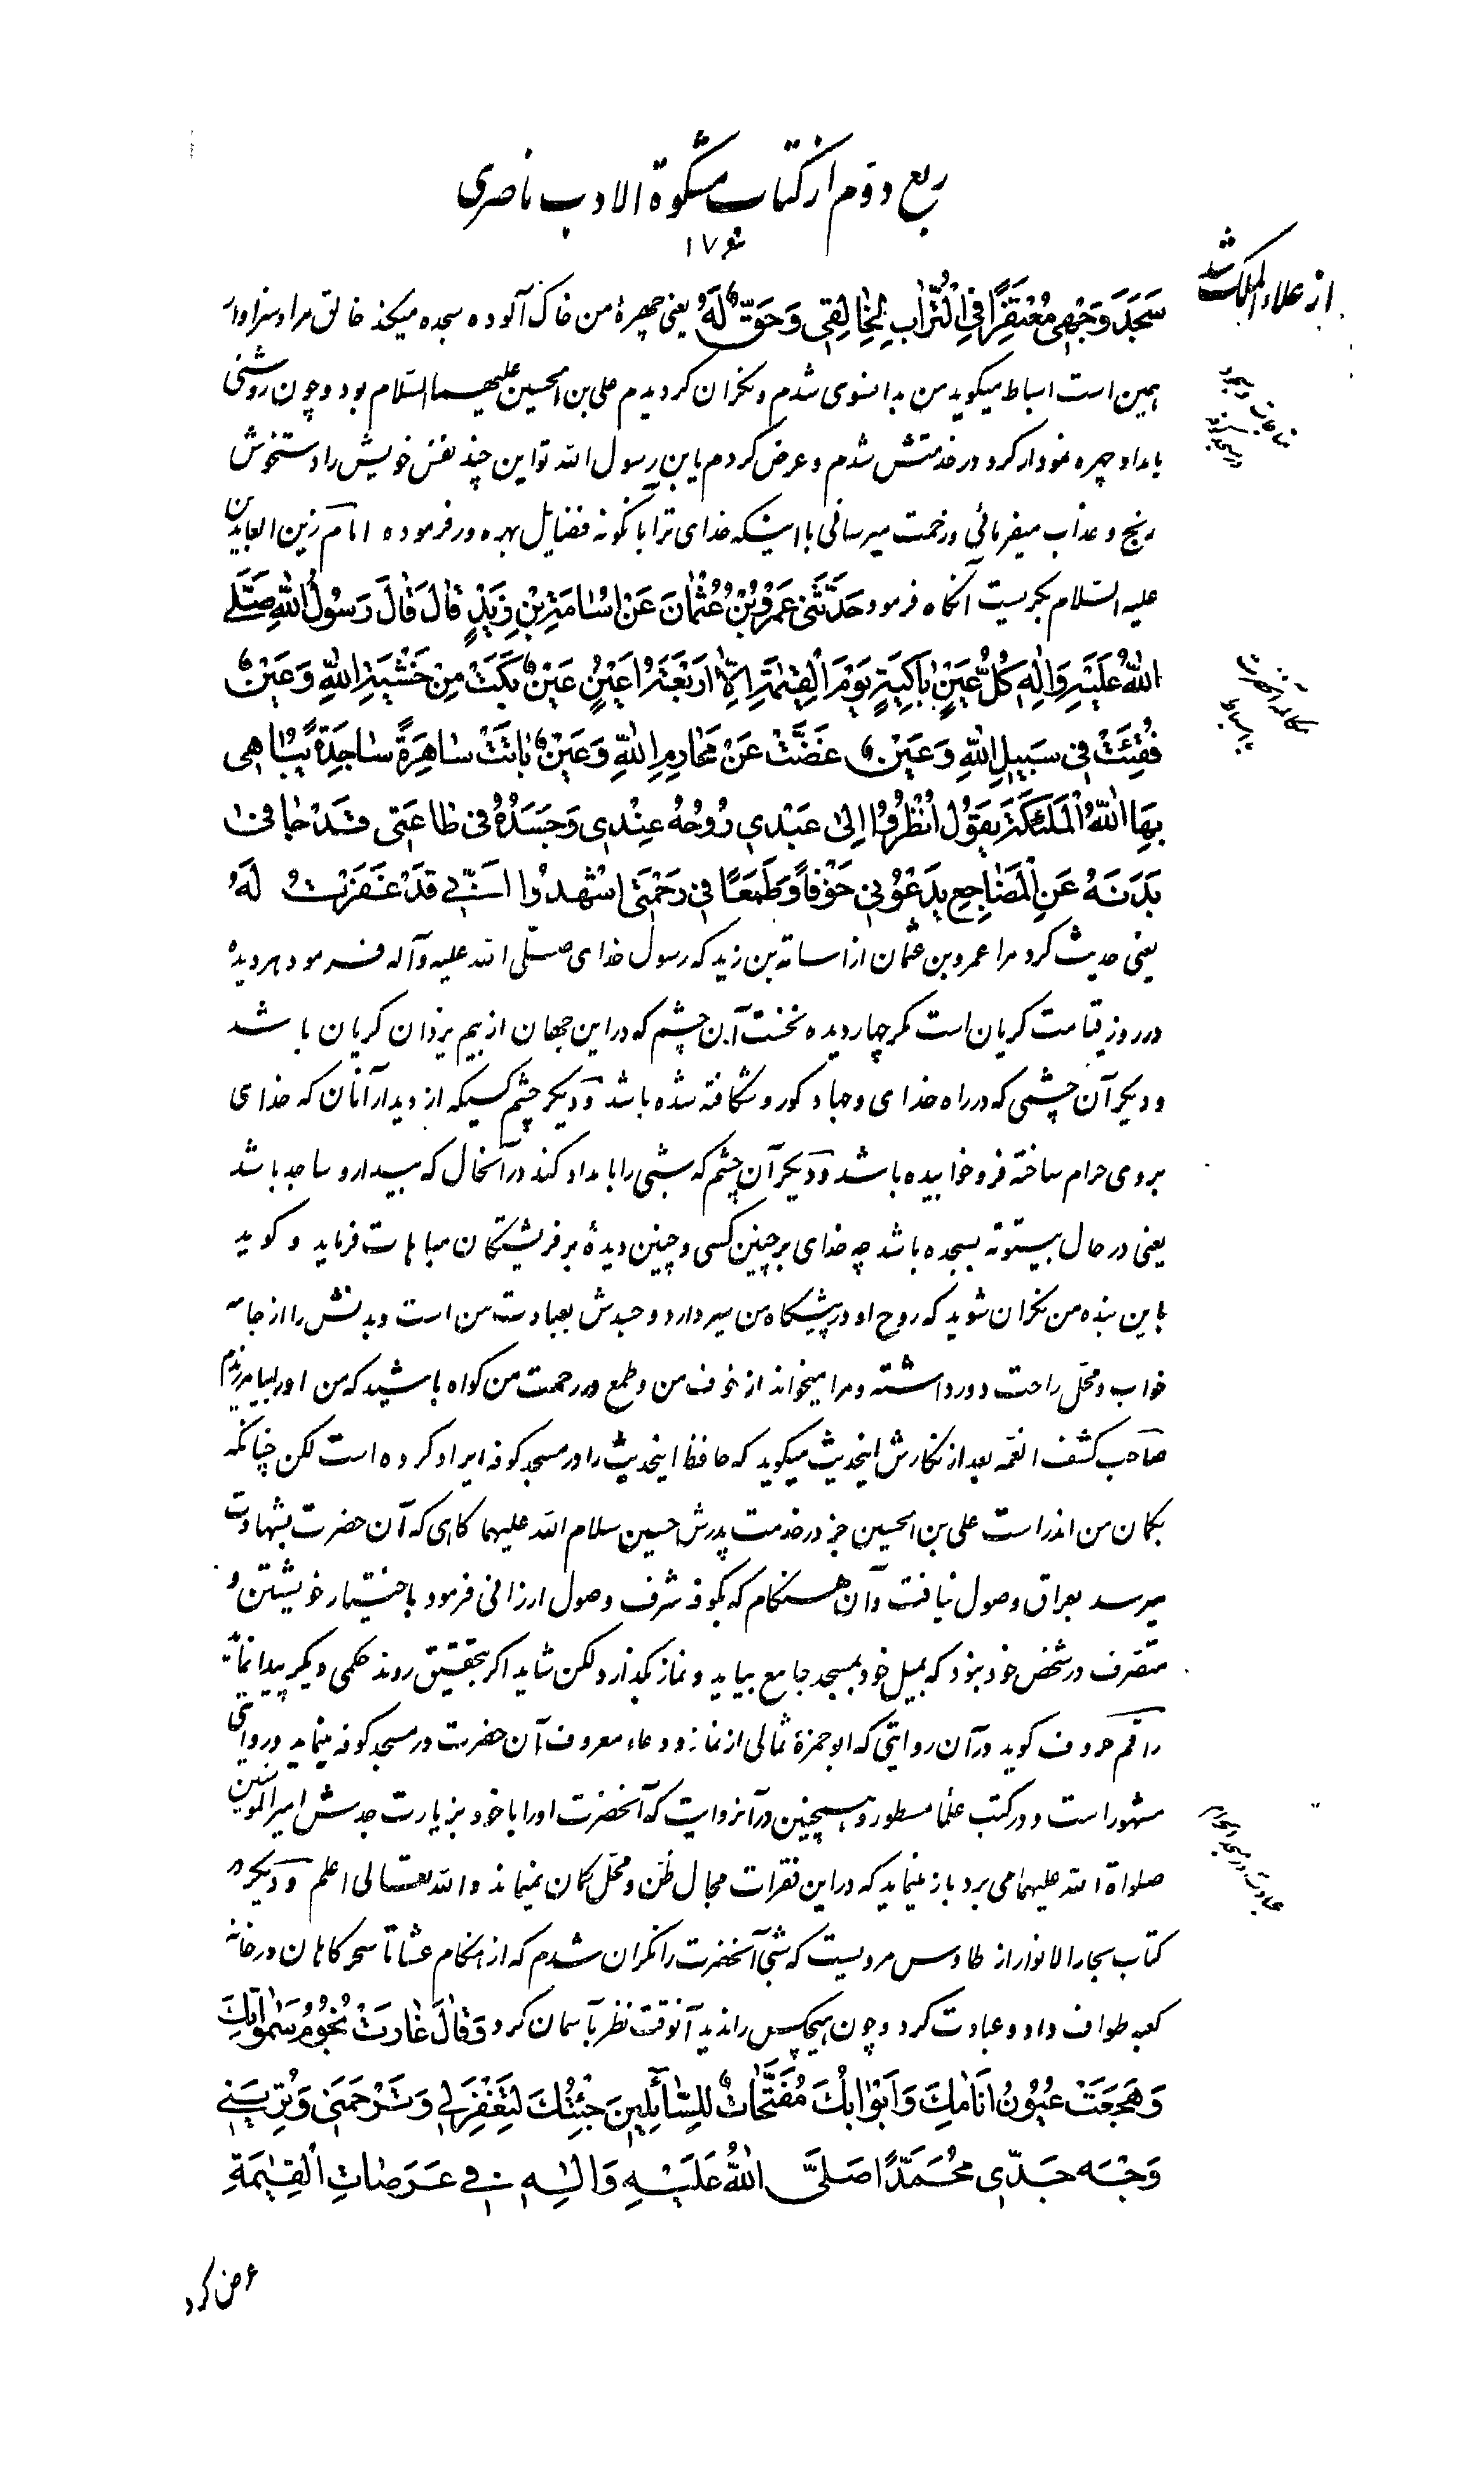 ربع دوم از کتاب مشکوة الادب ناصری
۱۷۶
از علاء الملک شد
سَجَدَ وَجْهی مُعْتَفِرًا فِی التُّرابِ لِخالِقی وَحَقٌّ لَهُ یعنی چهرهٔ من خاک آلوده سجده میکند خالق مرا و سزاوار
همین است اسباط میگوید من بدانسوی شدم و نکران کردیدم علی بن الحسین علیهما السّلام بود و چون روشنی
بامداد چهره نمودار کرد در خدمتش شدم و عرض کردم یابن رسول الله تو این چند نفس خویش را دستخوش
رنج و عذاب میفرمائی و زحمت میرسانی با اینکه خدای ترا بآنگونه فضایل بهره ور فرموده امام زین العابدین
علیه السّلام بکریست آنکاه فرمود حَدَّثَنی عَمْرُو بْنُ عُثْمانَ عَنْ اُسامَةَ بْنِ زَیْدٍ قالَ قالَ رَسُولُ اللهِ صَلَّی
اللهُ عَلَیْهِ وَالِهِ کُلُّ عَیْنٍ باکِیَةٍ یَوْمَ الْقِیمَةِ اِلاّ اَرْبَعَةَ اَعْیُنٍ عَیْنٌ بَکَتْ مِنْ خَشْیَةِ اللهِ وَعَیْنٌ
فُقِئَتْ فی سَبیلِ اللهِ وَعَیْنٌ غَضَّتْ عَنْ مَحارِمِ اللهِ وَعَیْنٌ باتَتْ ساهِرَةً ساجِدَةً یُباهی
بِهَا اللهُ الْمَلئِکَةَ یَقُولُ اُنْظُرُوا اِلی عَبْدی رُوحُهُ عِنْدی وَجَسَدُهُ فی طاعَتی قَدْ جافی
بَدَنَهُ عَنِ الْمَضاجِعِ یَدْعُونی خَوْفاً وَطَمَعًا فی رَحْمَتی اِشْهَدُوا اَنّی قَدْ غَفَرْتُ لَهُ
یعنی حدیث کرد مرا عمرو بن عثمان از اسامة بن زید که رسول خدای صلّی الله علیه وآله فرمود هر دیده
در روز قیامت کریان است مکر چهار دیده نخست آن چشم که در این جهان از بیم یزدان کریان باشد
و دیکر آن چشمی که در راه خدای و جهاد کور و شکافته شده باشد و دیکر چشم کسیکه از دیدار آنان که خدای
بر وی حرام ساخته فرو خوابیده باشد و دیکر آن چشم که شبی را بامداد کند در آنحال که بیدار و ساجد باشد
یعنی در حال بیتوته بسجده باشد چه خدای بر چنین کسی و چنین دیدهٔ بر فریشتکان مباهات فرماید و کوید
باین بنده من نکران شوید که روح او در پیشکاه من سیر دارد و جسدش بعبادت من است و بدنش را از جامه
خواب و محل راحت دور داشته و مرا میخواند از خوف من و طمع در رحمت من کواه باشید که من او را بیامرزیدم
صاحب کشف الغمه بعد از نکارش اینحدیث میکوید که حافظ اینحدیث را در مسجد کوفه ایراد کرده است لکن چنانکه
بکمان من اندر است علی بن الحسین جز در خدمت پدرش حسین سلام الله علیهما کاهی که آن حضرت بشهادت
میرسد بعراق وصول نیافت و آن هنکام که بکوفه شرف وصول ارزانی فرمود باختیار خویشتن و
متصرف در شخص خود نبود که بمیل خود بمسجد جامع بیاید و نماز بکذارد لکن شاید اکر بتحقیق روند حکمی دیکر پیدا نماید
راقم حروف کوید در آن روایتی که ابو حمزهٔ ثمالی از نماز و دعاء معروف آن حضرت در مسجد کوفه مینماید و روایتی
مشهور است و در کتب علما مسطور و همچنین در آنروایت که آنحضرت او را با خود بزیارت جدش امیر المؤمنین
صلواة الله علیهما می برد باز مینماید که در این فقرات مجال ظن و محل کمان نمیماند والله تعالی اعلم و دیکر در
کتاب بحار الانوار از طاوس مرویست که شبی آنحضرت را نکران شدم که از هنکام عشا تا سحر کاهان در خانه
کعبه طواف داد و عبادت کرد و چون هیچکس را ندید آنوقت نظر بآسمان کرد وَقالَ غارَتْ نُجُومُ سَمواتِکَ
وَهَجَعَتْ عُیُونُ اَنامِکَ وَاَبْوابُکَ مُفَتَّحاتٌ لِلسّائِلینَ جِئْتُکَ لِتَغْفِرَ لی وَتَرْحَمَنی وَتُرِیَنی
وَجْهَ جَدّی مُحَمَّدًا صَلَّی اللهُ عَلَیْهِ وَالِهِ فی عَرَصاتِ الْقِیمَةِ
مکالمه آنحضرت
با اسباط
عبادت در مسجد الحرام
عرض کرد